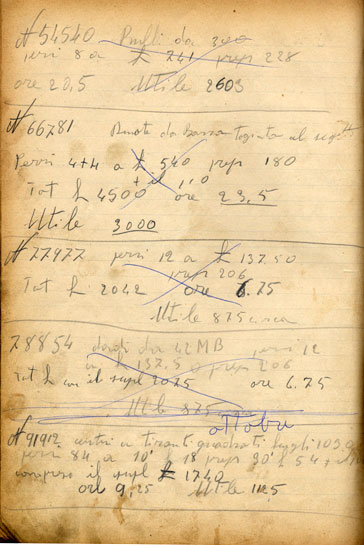 N 54540 Bulli da 300
pezzi 8 a £ 241 prep 228
ore 20,5 Utile 2603
N 66781 Ruote da
Pezzi 4+4 a £ 540 prep 180
Tot £ 4500 ore 23,5
Utile 3000
N 77977 pezzi 12 a £ 137.50
prep 206
Tot £ 2042 ore 6.75
Utile 875 circa
78854 dadi da 42MB pezzi 12
a £ 137.50 prep 206
Tot £ con il supl 2025 ore 6.75
Utile 875
ottobre
N 91912 tiranti quadrati
pezzi 84 a 10' £ 18 prep 90' £ 54,
compreso il supl £ 1740
ore 9,25 Utile